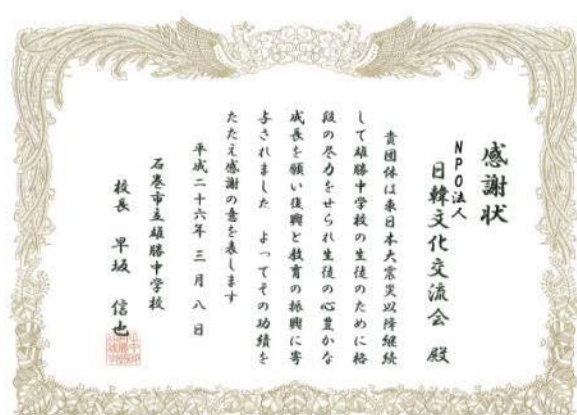 感謝状
NPO法人
日韓文化交流会 殿
貴団体は東日本大震災以降継続
して雄勝中学校の生徒のために格
段の尽力をせられ生徒の心豊かな
成長を願い復興と教育の振興に寄
与されました よってその功績を
たたえ感謝の意を表します
平成二十六年 三月八日
石巻市立雄勝中学校
校長 早坂 信也